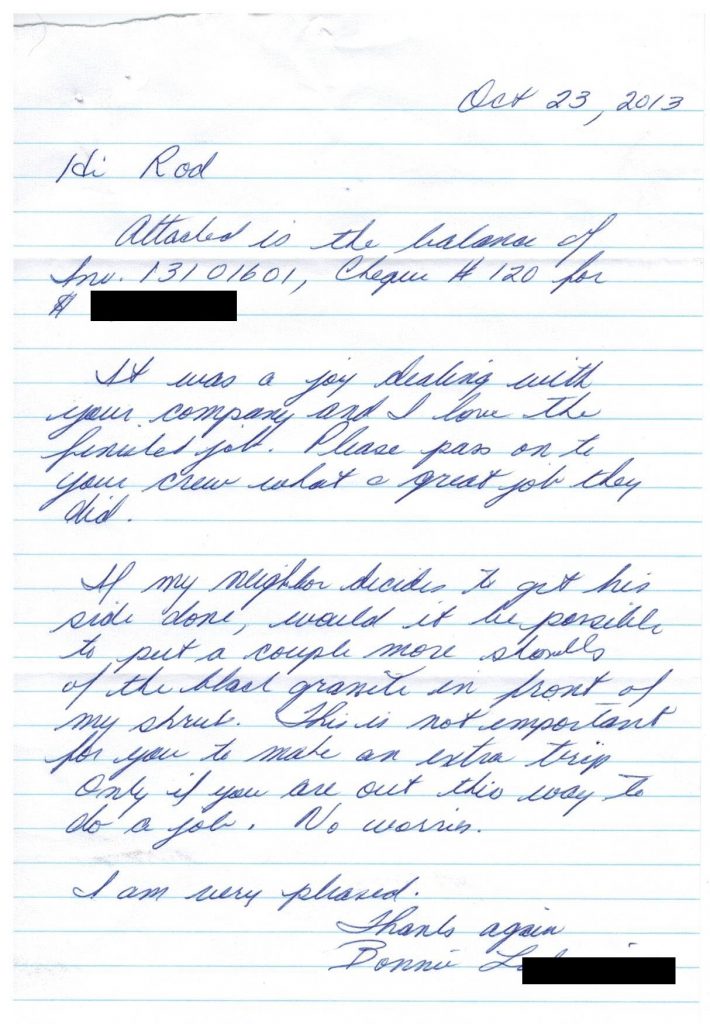 Oct 23, 2013
Hi Rod
Attached is the balance of
Inv. 13101601, Cheque # 120 for
$
It was a joy dealing with
your company and I love the
finished job. Please pass on to
your crew what a great job they
did.
If my neighbor decides to get his
side done, would it be possible
to put a couple more shovells
of the black granite in front of
my shrub. This is not important
for you to make an extra trip
Only if you are out this way to
do a job. No worries.
I am very pleased.
Thanks again
Bonnie